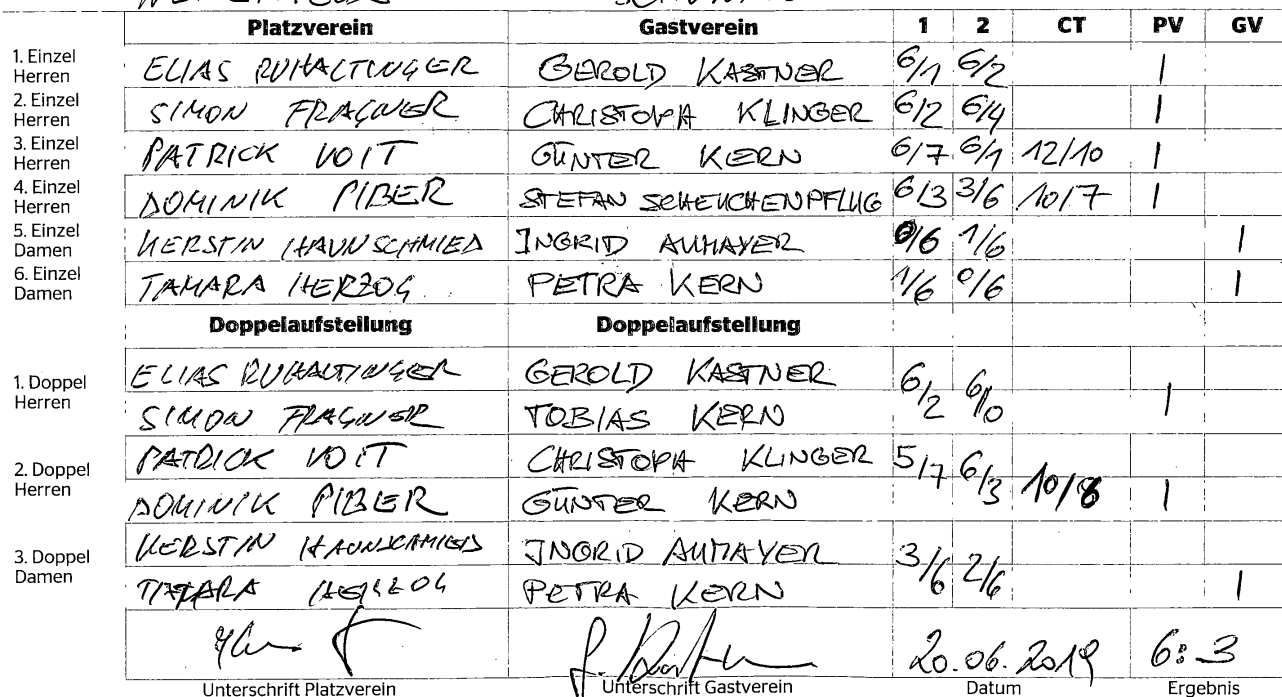 Platzverein Gastverein 1 2 CT PV GV
1. Einzel Herren ELIAS RUHALTINGER GEROLD KASTNER 6/1 6/2 1
2. Einzel Herren SIMON FRAGNER CHRISTOPH KLINGER 6/2 6/4 1
3. Einzel Herren PATRICK VOIT GÜNTER KERN 6/7 6/1 12/10 1
4. Einzel Herren DOMINIK PIBER STEFAN SCHEUCHENPFLUG 6/3 3/6 10/7 1
5. Einzel Damen KERSTIN HAUNSCHMIED INGRID AUMAYER 0/6 1/6 1
6. Einzel Damen TAMARA HERZOG PETRA KERN 1/6 0/6 1
Doppelaufstellung Doppelaufstellung
1. Doppel Herren
ELIAS RUHALTINGER GEROLD KASTNER 6/2 6/0 1
SIMON FRAGNER TOBIAS KERN
2. Doppel Herren
PATRICK VOIT CHRISTOPH KLINGER 5/7 6/3 10/8 1
DOMINIK PIBER GÜNTER KERN
3. Doppel Damen
KERSTIN HAUNSCHMIED INGRID AUMAYER 3/6 2/6 1
TAMARA HERZOG PETRA KERN
20.06.2019 6:3
Unterschrift Platzverein Unterschrift Gastverein Datum Ergebnis